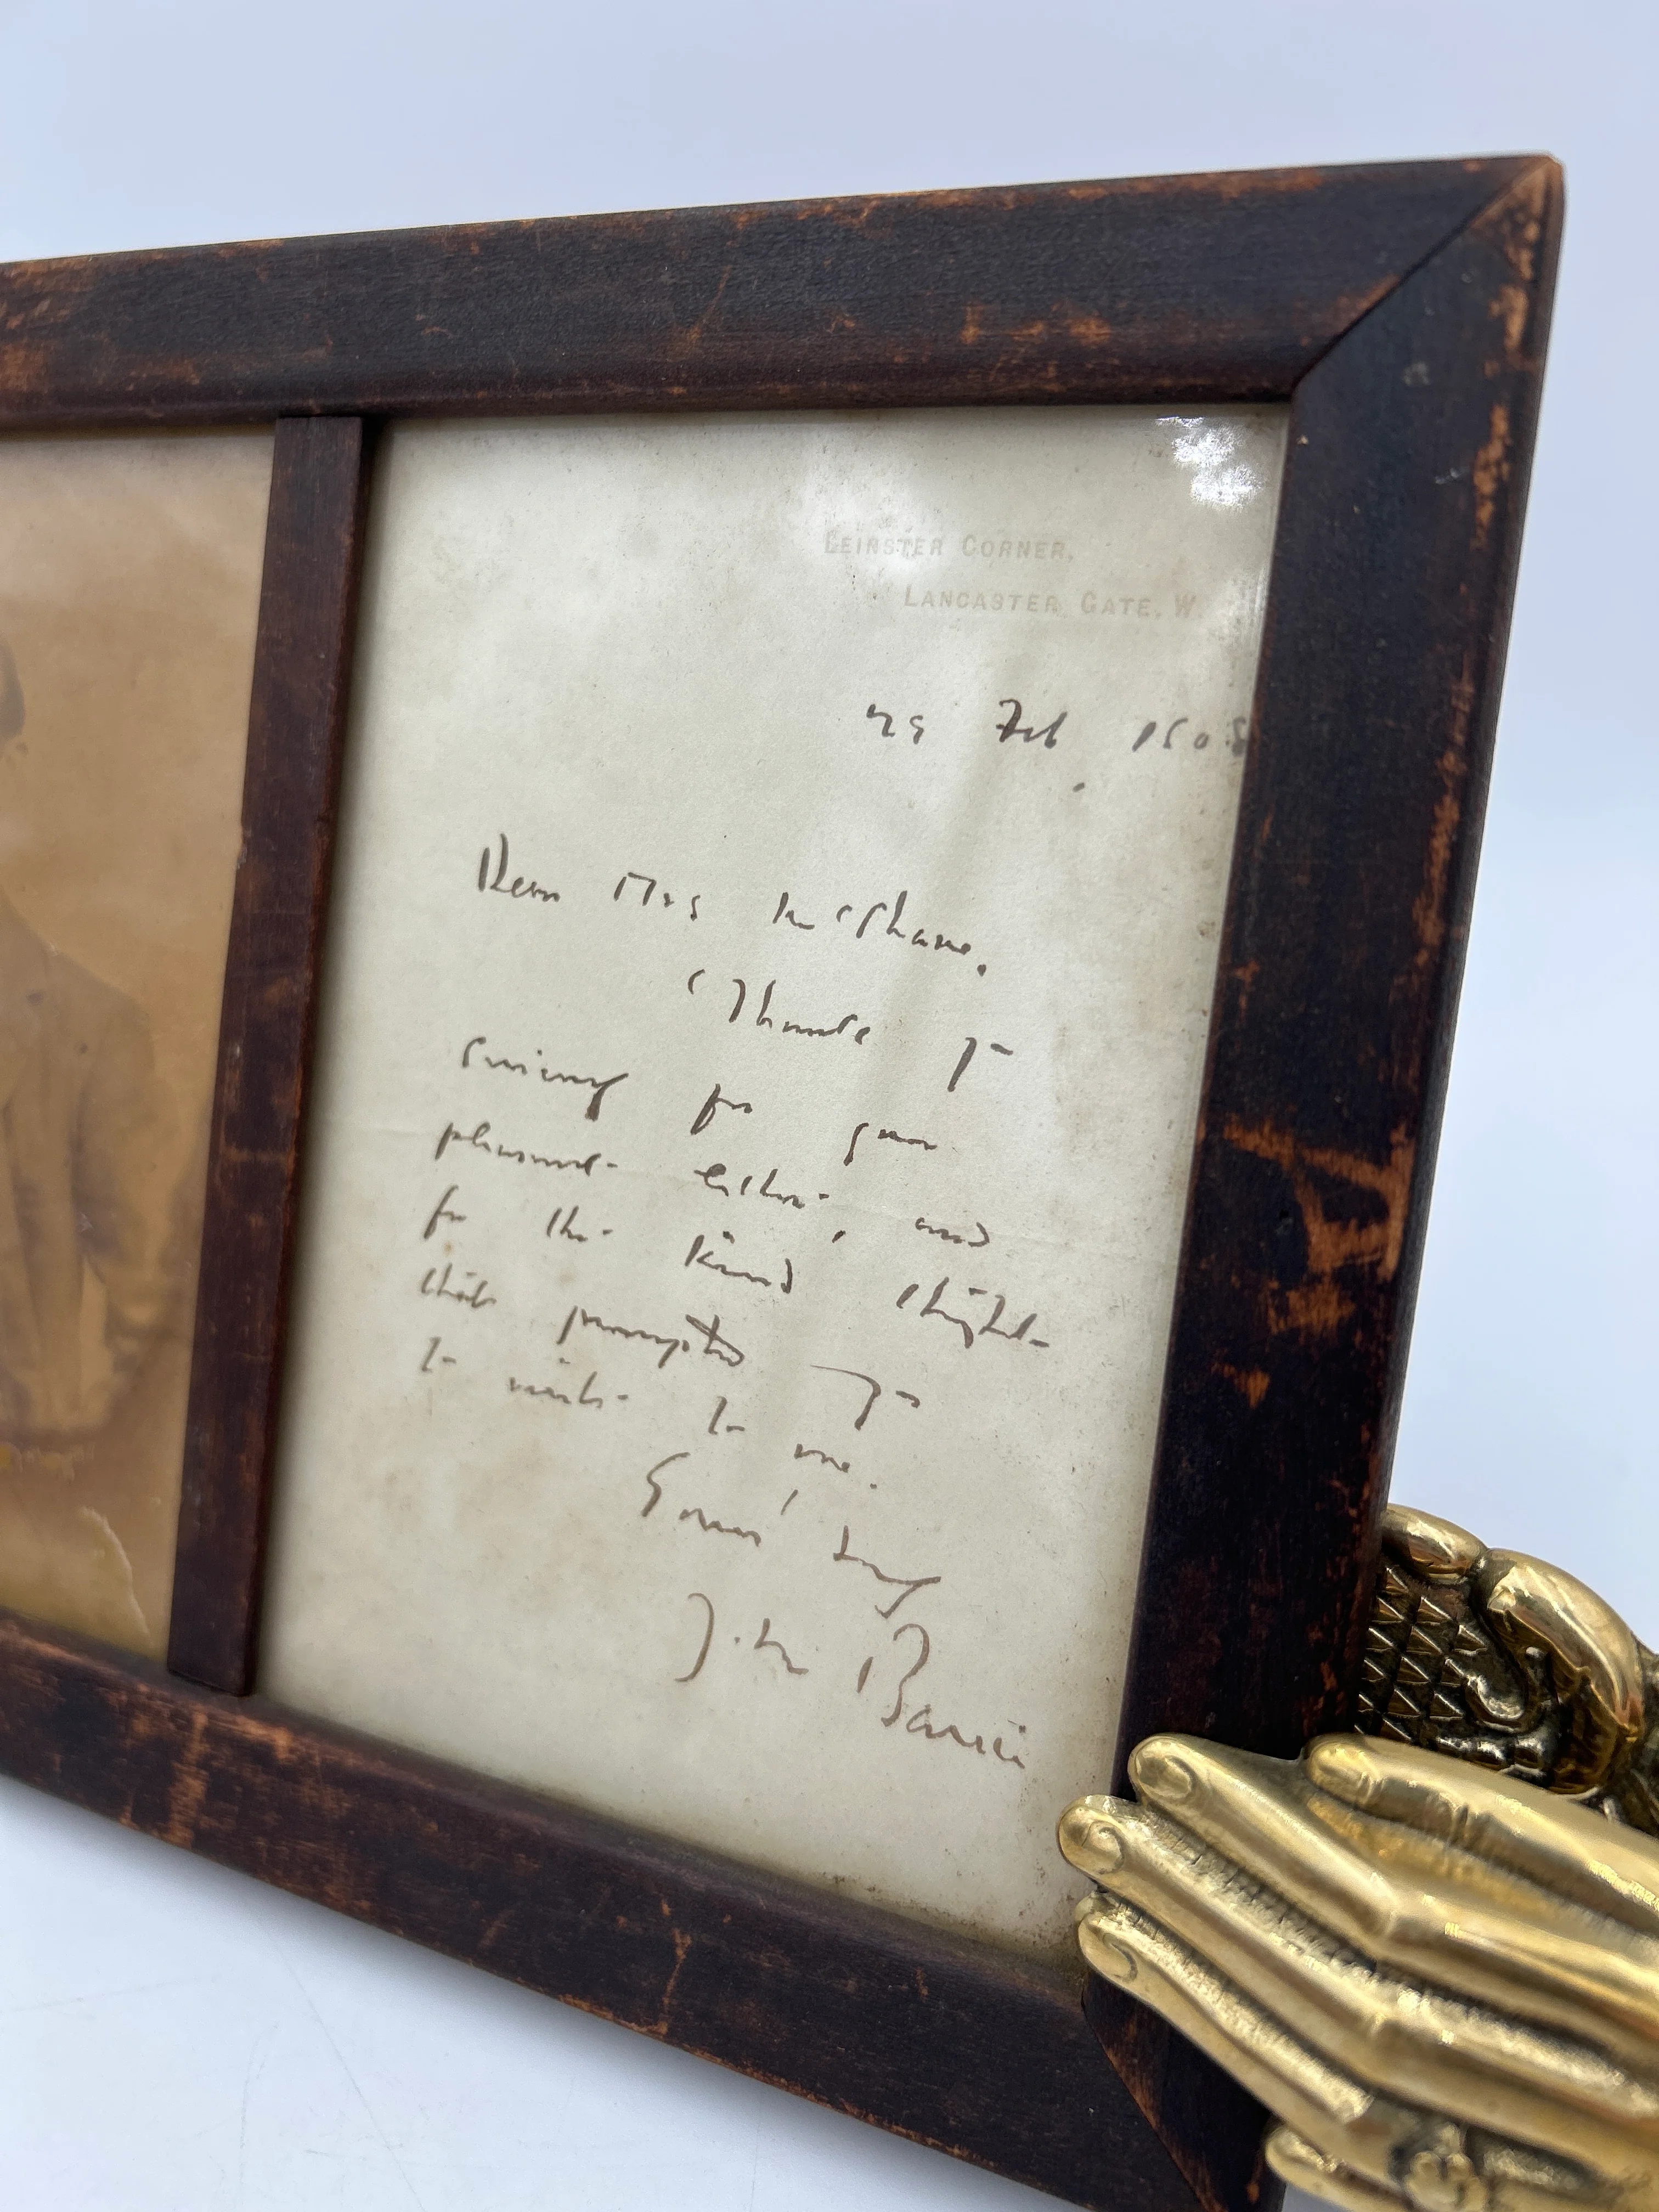 LEINSTER CORNER,
LANCASTER GATE, W.
29 Feb 1908
Dear Mrs McShane,
Thank you
sincerely for your
pleasant letter, and
for the kind thought
that prompted you
to write to me.
Yours truly
J. M. Barrie